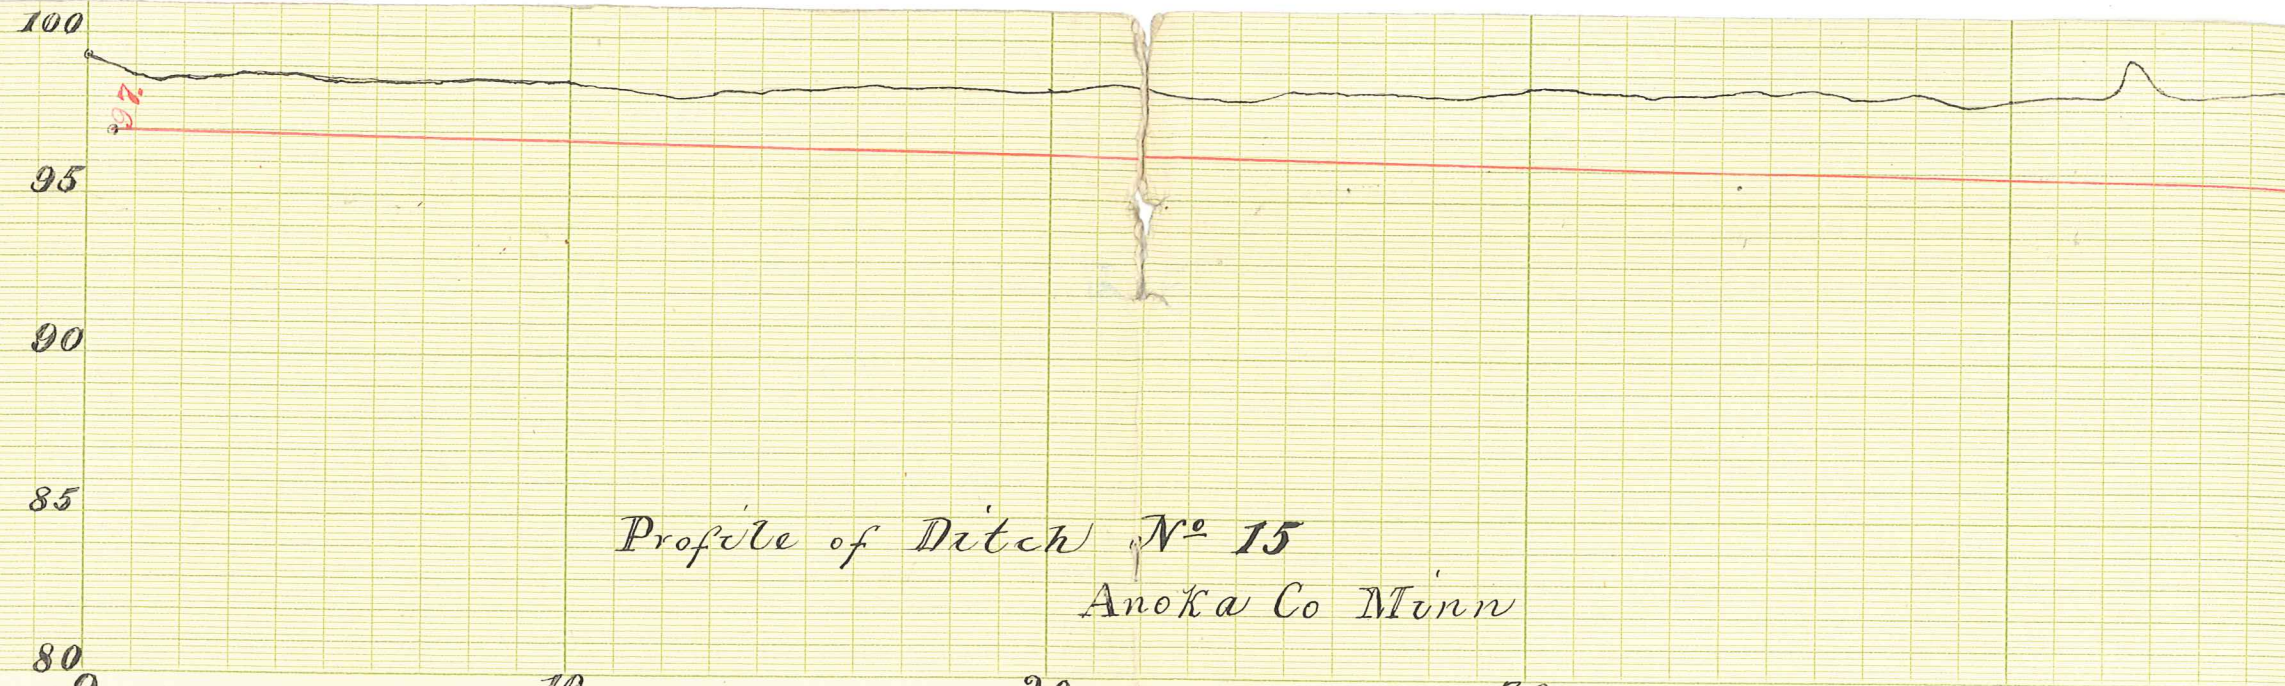 100
97.
95
90
85
Profile of Ditch Nº 15
Anoka Co Minn
80
0 10 20 30